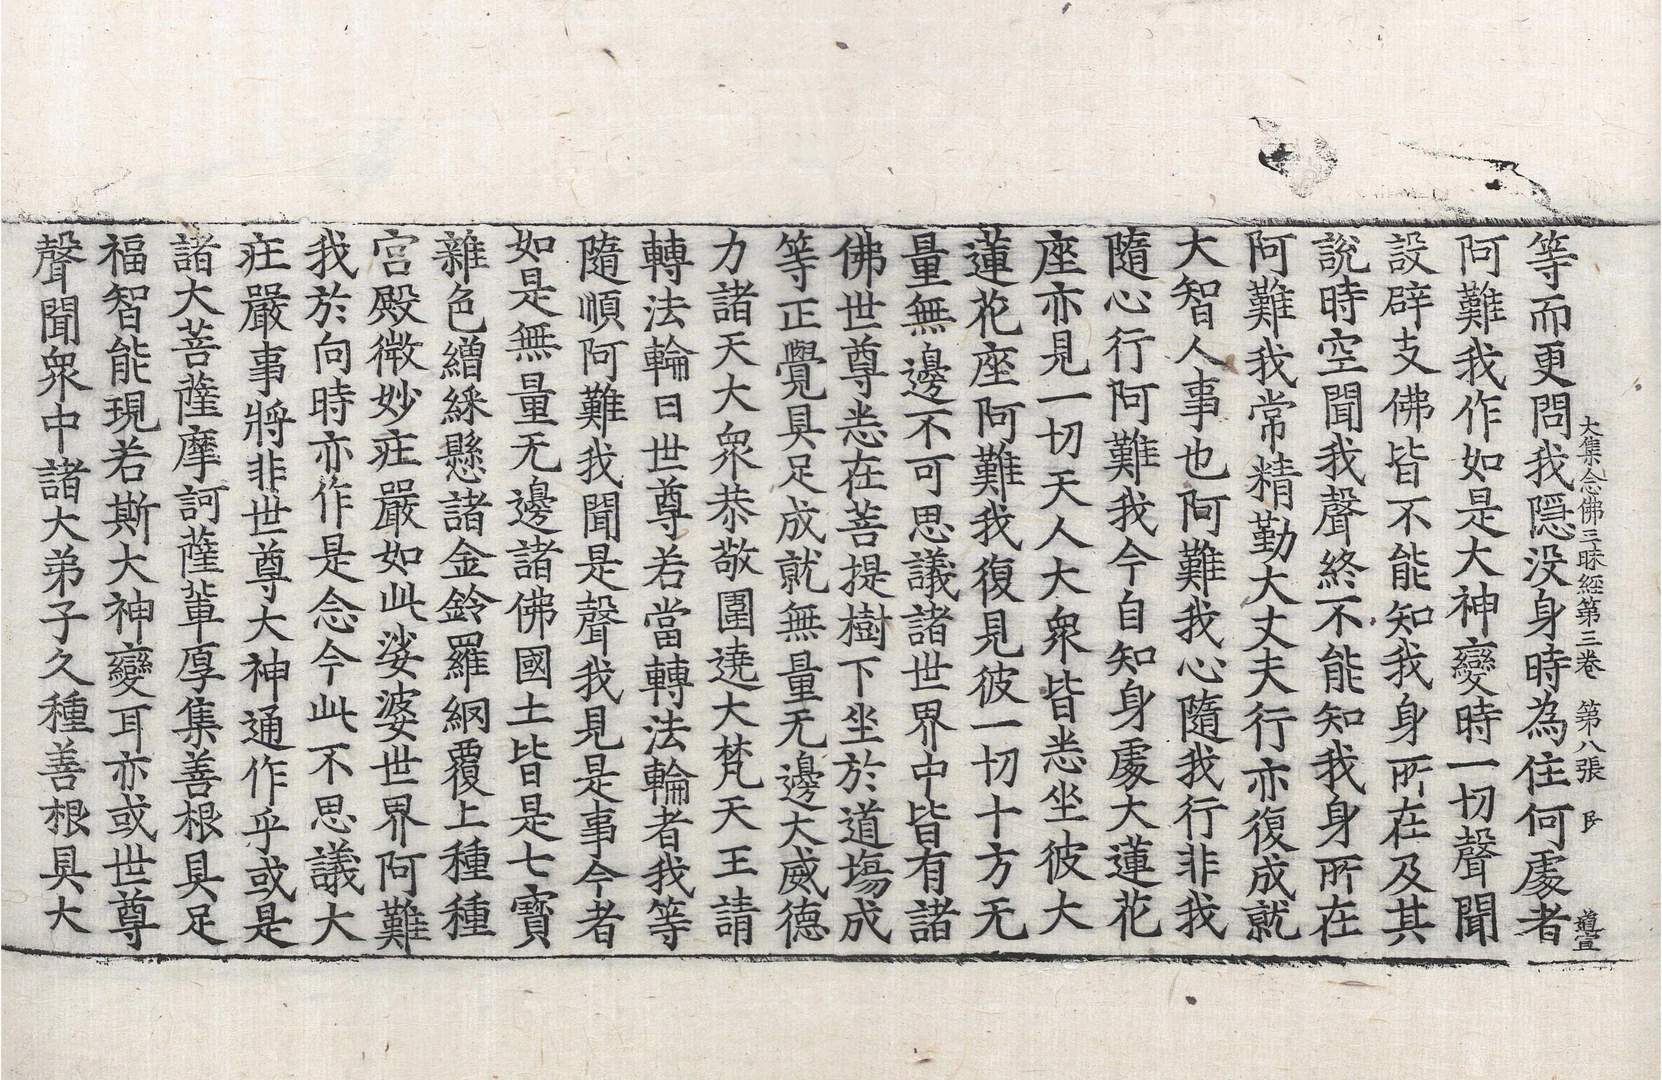 大集念佛三昧經第三卷　第八張　民　道宣
等而更問我隱没身時為住何處者
阿難我作如是大神變時一切聲聞
設辟支佛皆不能知我身所在及其
說時空聞我聲終不能知我身所在
阿難我常精勤大丈夫行亦復成就
大智人事也阿難我心隨我行非我
隨心行阿難我今自知身處大蓮花
座亦見一切天人大衆皆悉坐彼大
蓮花座阿難我復見彼一切十方无
量無邊不可思議諸世界中皆有諸
佛世尊悉在菩提樹下坐於道場成
等正覺具足成就無量无邊大威德
力諸天大衆恭敬圍遶大梵天王請
轉法輪曰世尊若當轉法輪者我等
隨順阿難我聞是聲我見是事今者
如是無量无邊諸佛國土皆是七寶
雜色繒綵懸諸金鈴羅網覆上種種
宮殿微妙疘嚴如此娑婆世界阿難
我於向時亦作是念今此不思議大
疘嚴事將非世尊大神通作乎或是
諸大菩薩摩訶薩輩厚集善根具足
福智能現若斯大神變耳亦或世尊
聲聞衆中諸大弟子久種善根具大